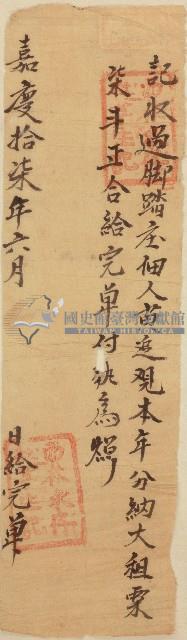 記收過腳踏庄佃人苗進觀本年分納大租粟
柒斗正合給完單付執為炤
嘉慶拾柒年六月
日給完單
國史館臺灣文獻館